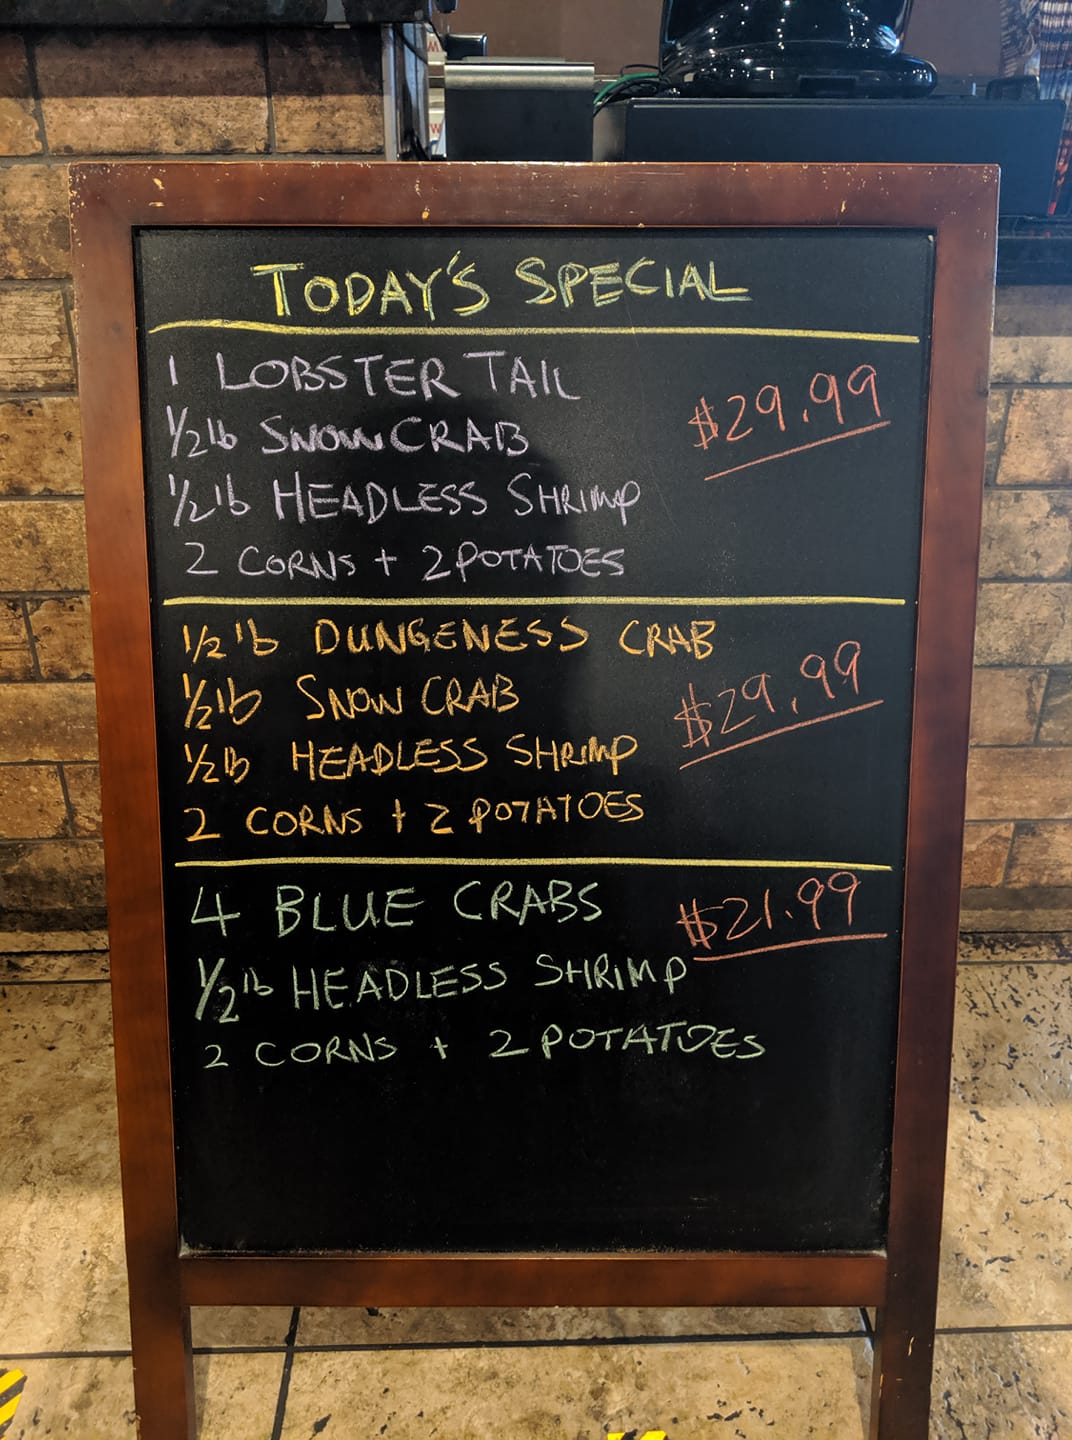 TODAY'S SPECIAL
1 LOBSTER TAIL
$29.99
1/2 lb SNOW CRAB
1/2 lb HEADLESS SHRIMP
2 CORNS + 2 POTATOES
1/2 lb DUNGENESS CRAB
1/2 lb SNOW CRAB
$29.99
1/2 lb HEADLESS SHRIMP
2 CORNS + 2 POTATOES
4 BLUE CRABS
$21.99
1/2 lb HEADLESS SHRIMP
2 CORNS + 2 POTATOES